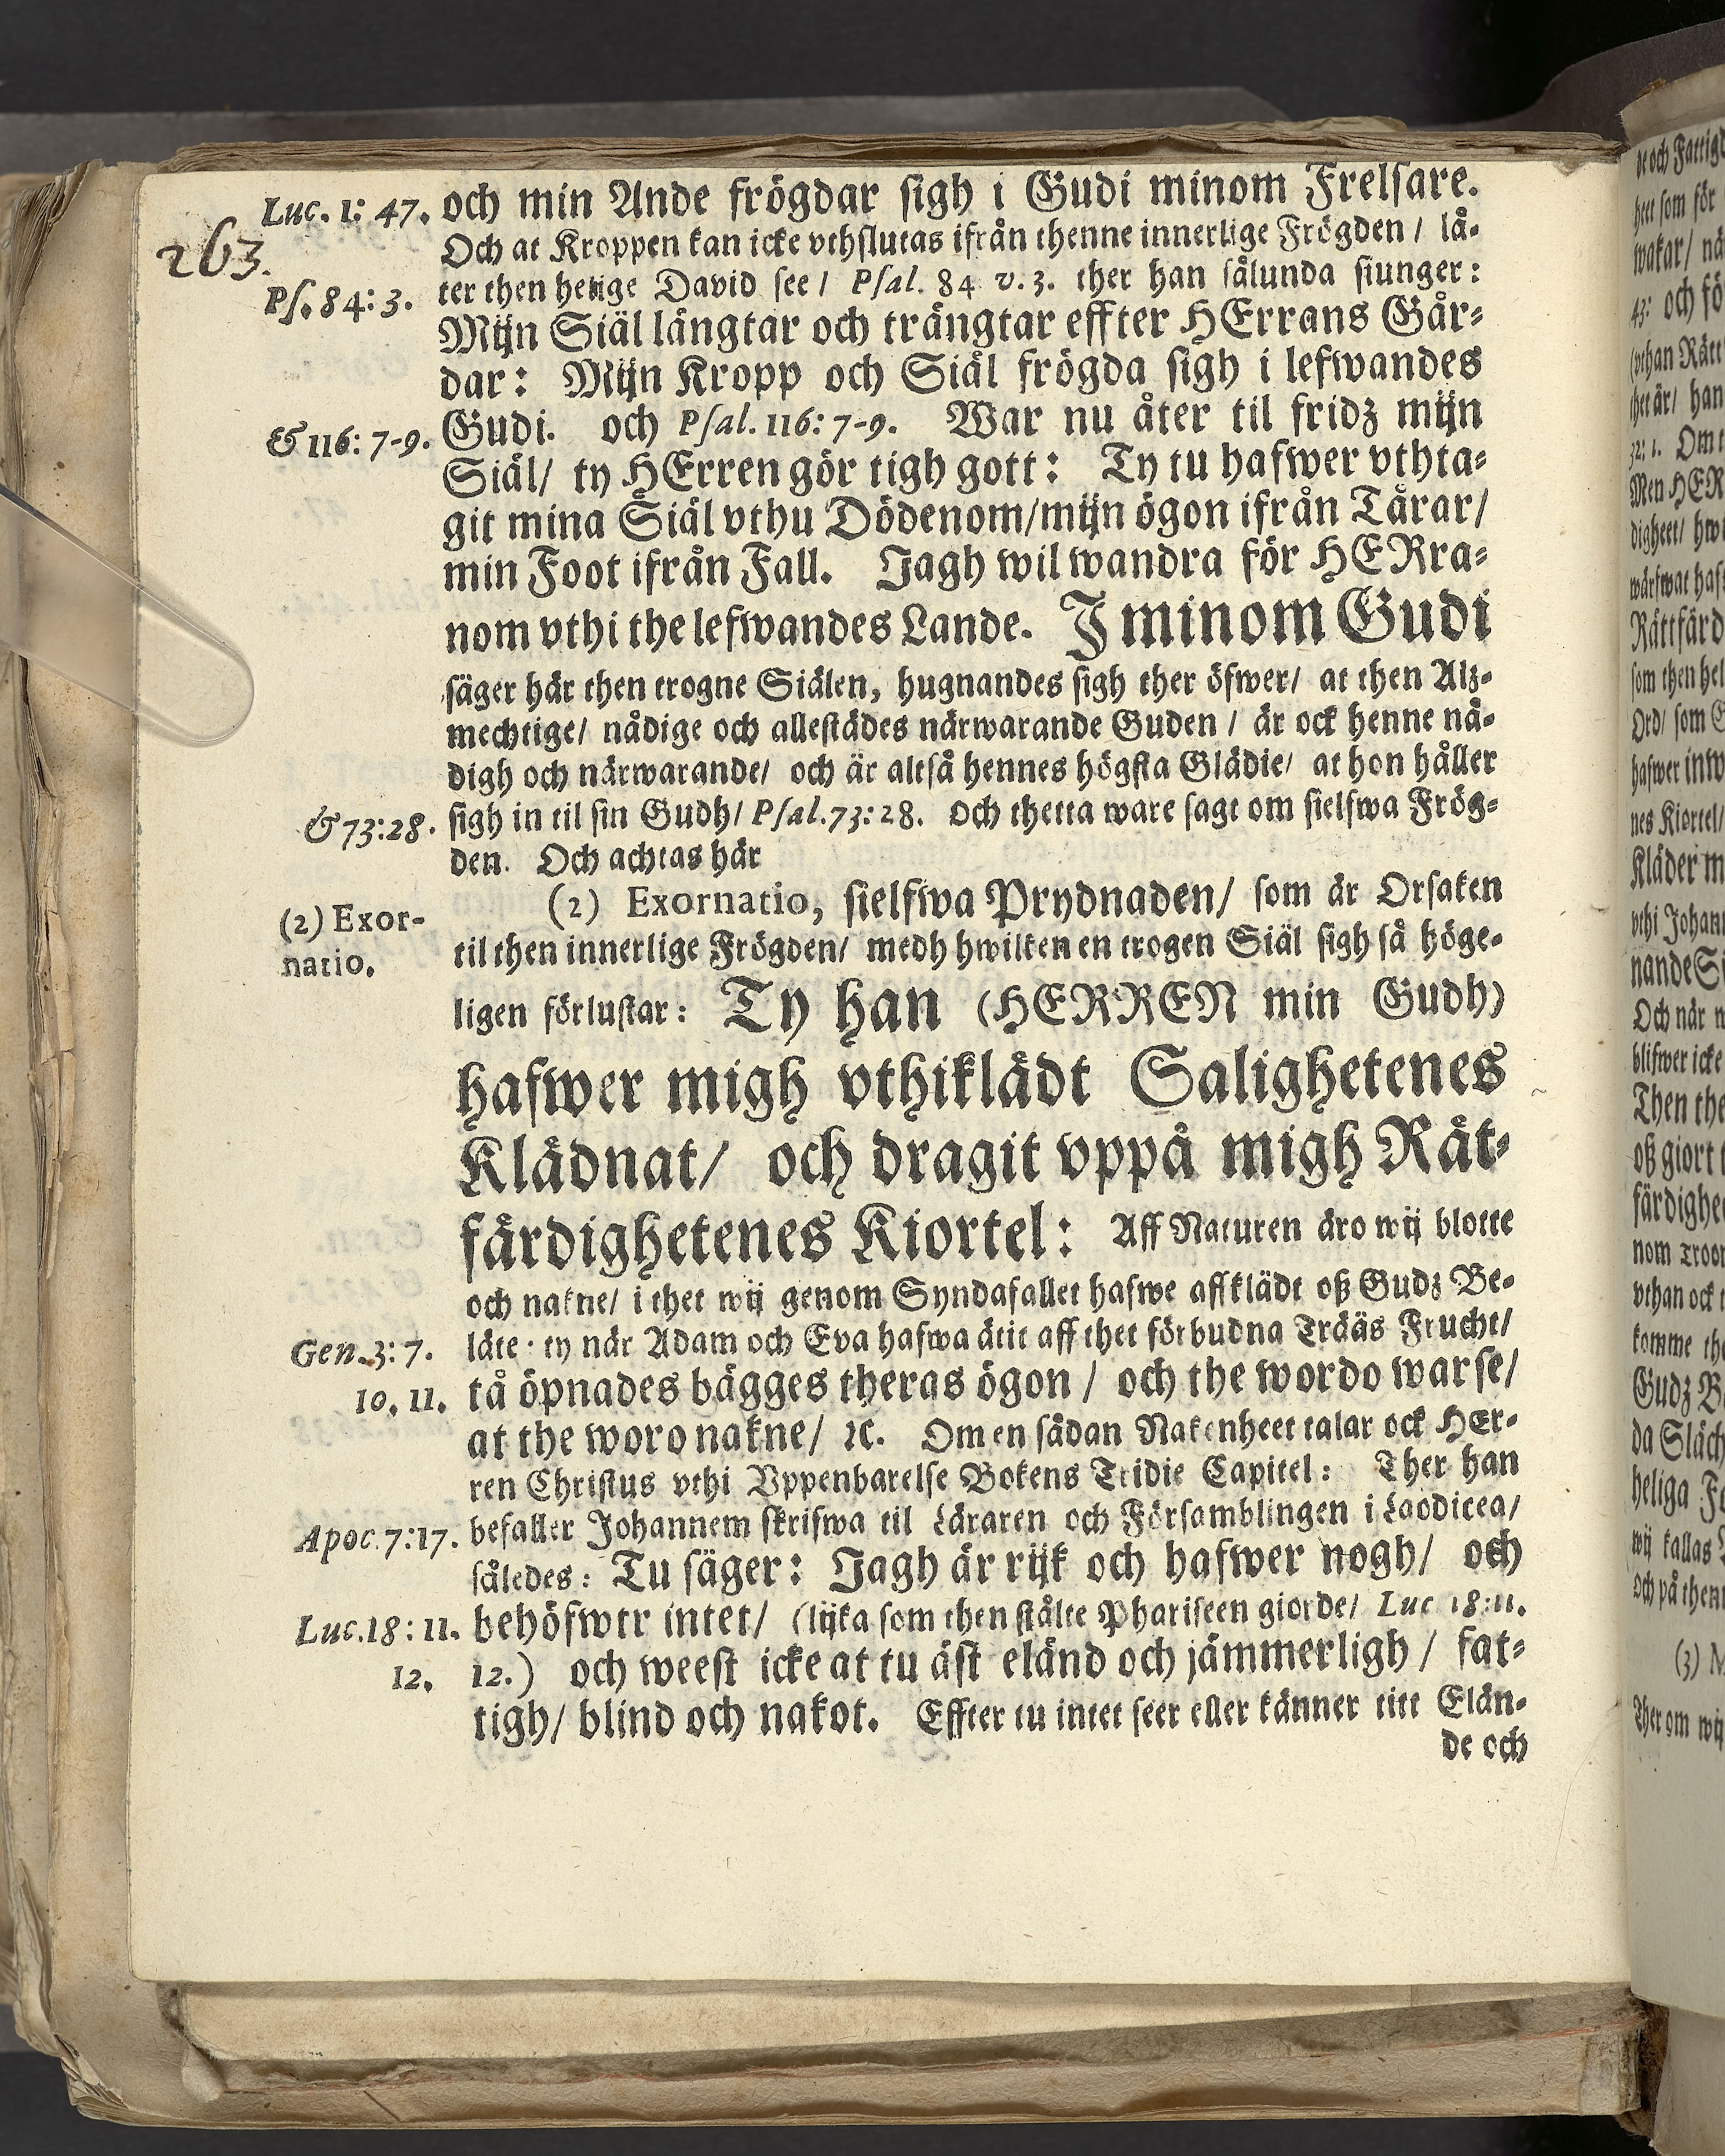 Luc. 1: 47. och min Ande frögdar sigh i Gudi minom Frelsare.
263.
Och at Kroppen kan icke vthslutas ifrån thenne innerlige Frögden / lå-
Ps. 84: 3. ter then helige David see / Psal. 84 v. 3. ther han sålunda siunger:
Mijn Siäl längtar och trängtar effter HErrans Går-
dar: Mijn Kropp och Siäl frögda sigh i lefwandes
& 116: 7-9. Gudi. och Psal. 116: 7-9. War nu åter til fridz mijn
Siäl/ ty HErren gör tigh gott: Ty tu hafwer vthta-
git mina Siäl vthu Dödenom/mijn ögon ifrån Tårar/
min Foot ifrån Fall. Jagh wil wandra för HERra-
nom vthi the lefwandes Lande. J minom Gudi
säger här then trogne Siälen, hugnandes sigh ther öfwer/ at then Alz-
mechtige/ nådige och allestädes närwarande Guden / är ock henne nå-
digh och närwarande/ och är altså hennes högsta Glädie/ at hon håller
& 73:28. sigh in til sin Gudh/ Psal. 73: 28. Och thetta ware sagt om sielfwa Frög-
den. Och achtas här
(2) Exor- (2) Exornatio, sielfwa Prydnaden/ som är Orsaken
natio. til then innerlige Frögden/ medh hwilken en trogen Siäl sigh så höge-
ligen förlustar: Ty han (HERREN min Gudh)
hafwer migh vthiklädt Salighetenes
Klädnat/ och dragit vppå migh Rät-
färdighetenes Kiortel: Aff Naturen äro wij blotte
och nakne/ i thet wij genom Syndafallet hafwe affklädt oß Gudz Be-
Gen. 3: 7. läte: ty när Adam och Eva hafwa ätit aff thet förbudna Trääs Frucht/
10. 11. tå öpnades bägges theras ögon / och the wordo warse/
at the woro nakne/ ꝛc. Om en sådan Nakenheet talar ock HEr-
ren Christus vthi Vppenbarelse Bokens Tridie Capitel: Ther han
Apoc. 7:17. befaller Johannem skrifwa til Läraren och Församblingen i Laodicea/
således: Tu säger: Jagh är rijk och hafwer nogh/ och
Luc. 18: 11. behöfwer intet/ (lijka som then stålte Phariseen giorde/ Luc 18: 11.
12. 12.) och weest icke at tu äst eländ och jämmerligh / fat-
tigh/ blind och nakot. Effter tu intet seer eller känner titt Elän-
de och